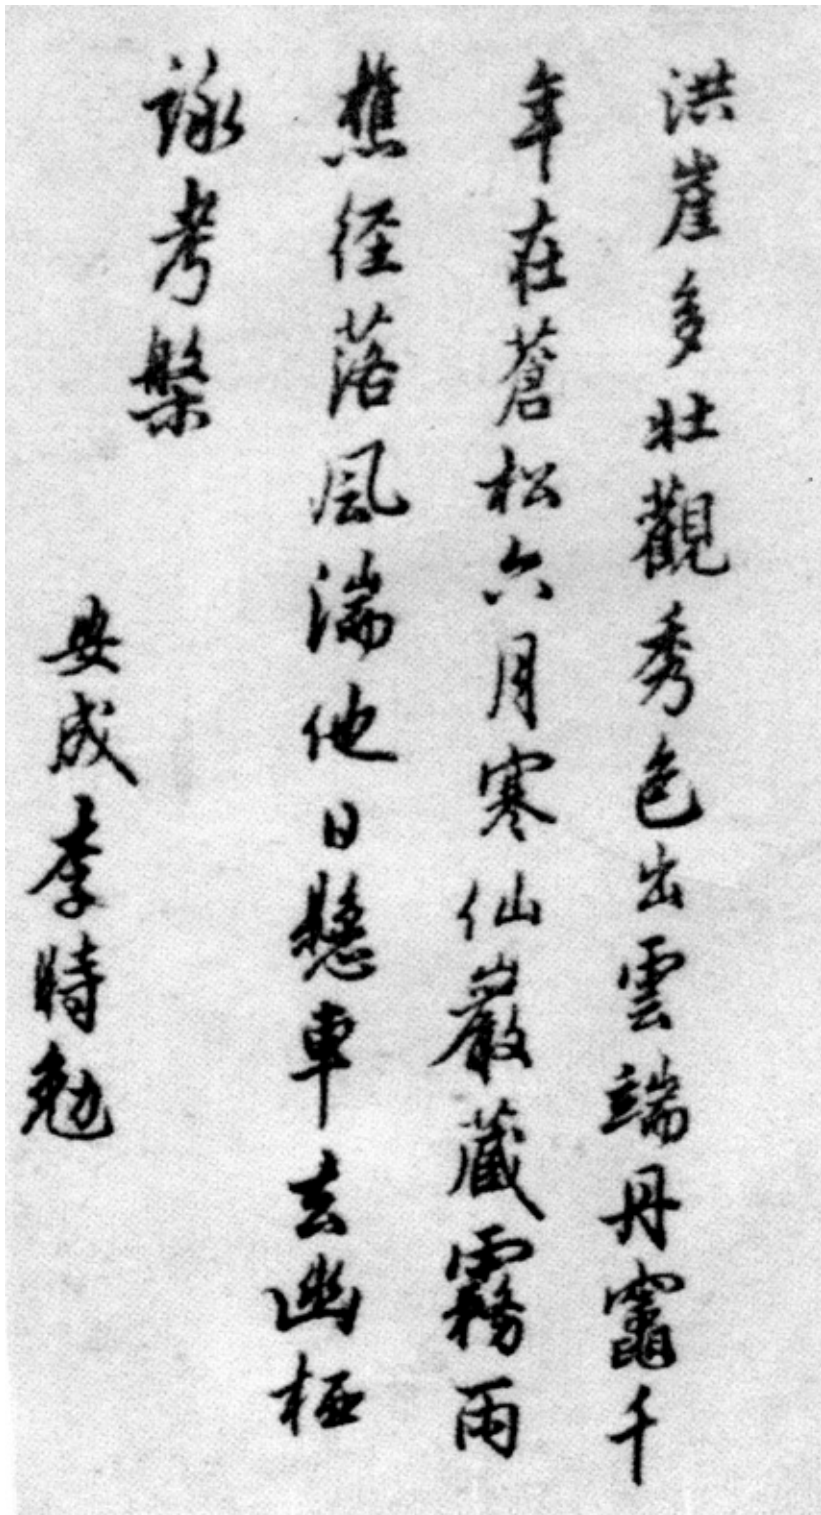 洪崖多壯觀秀色出雲端丹竈千
年在蒼松六月寒仙巖藏霧雨
樵徑落風湍他日懸車去幽極
詠考槃
安成李時勉